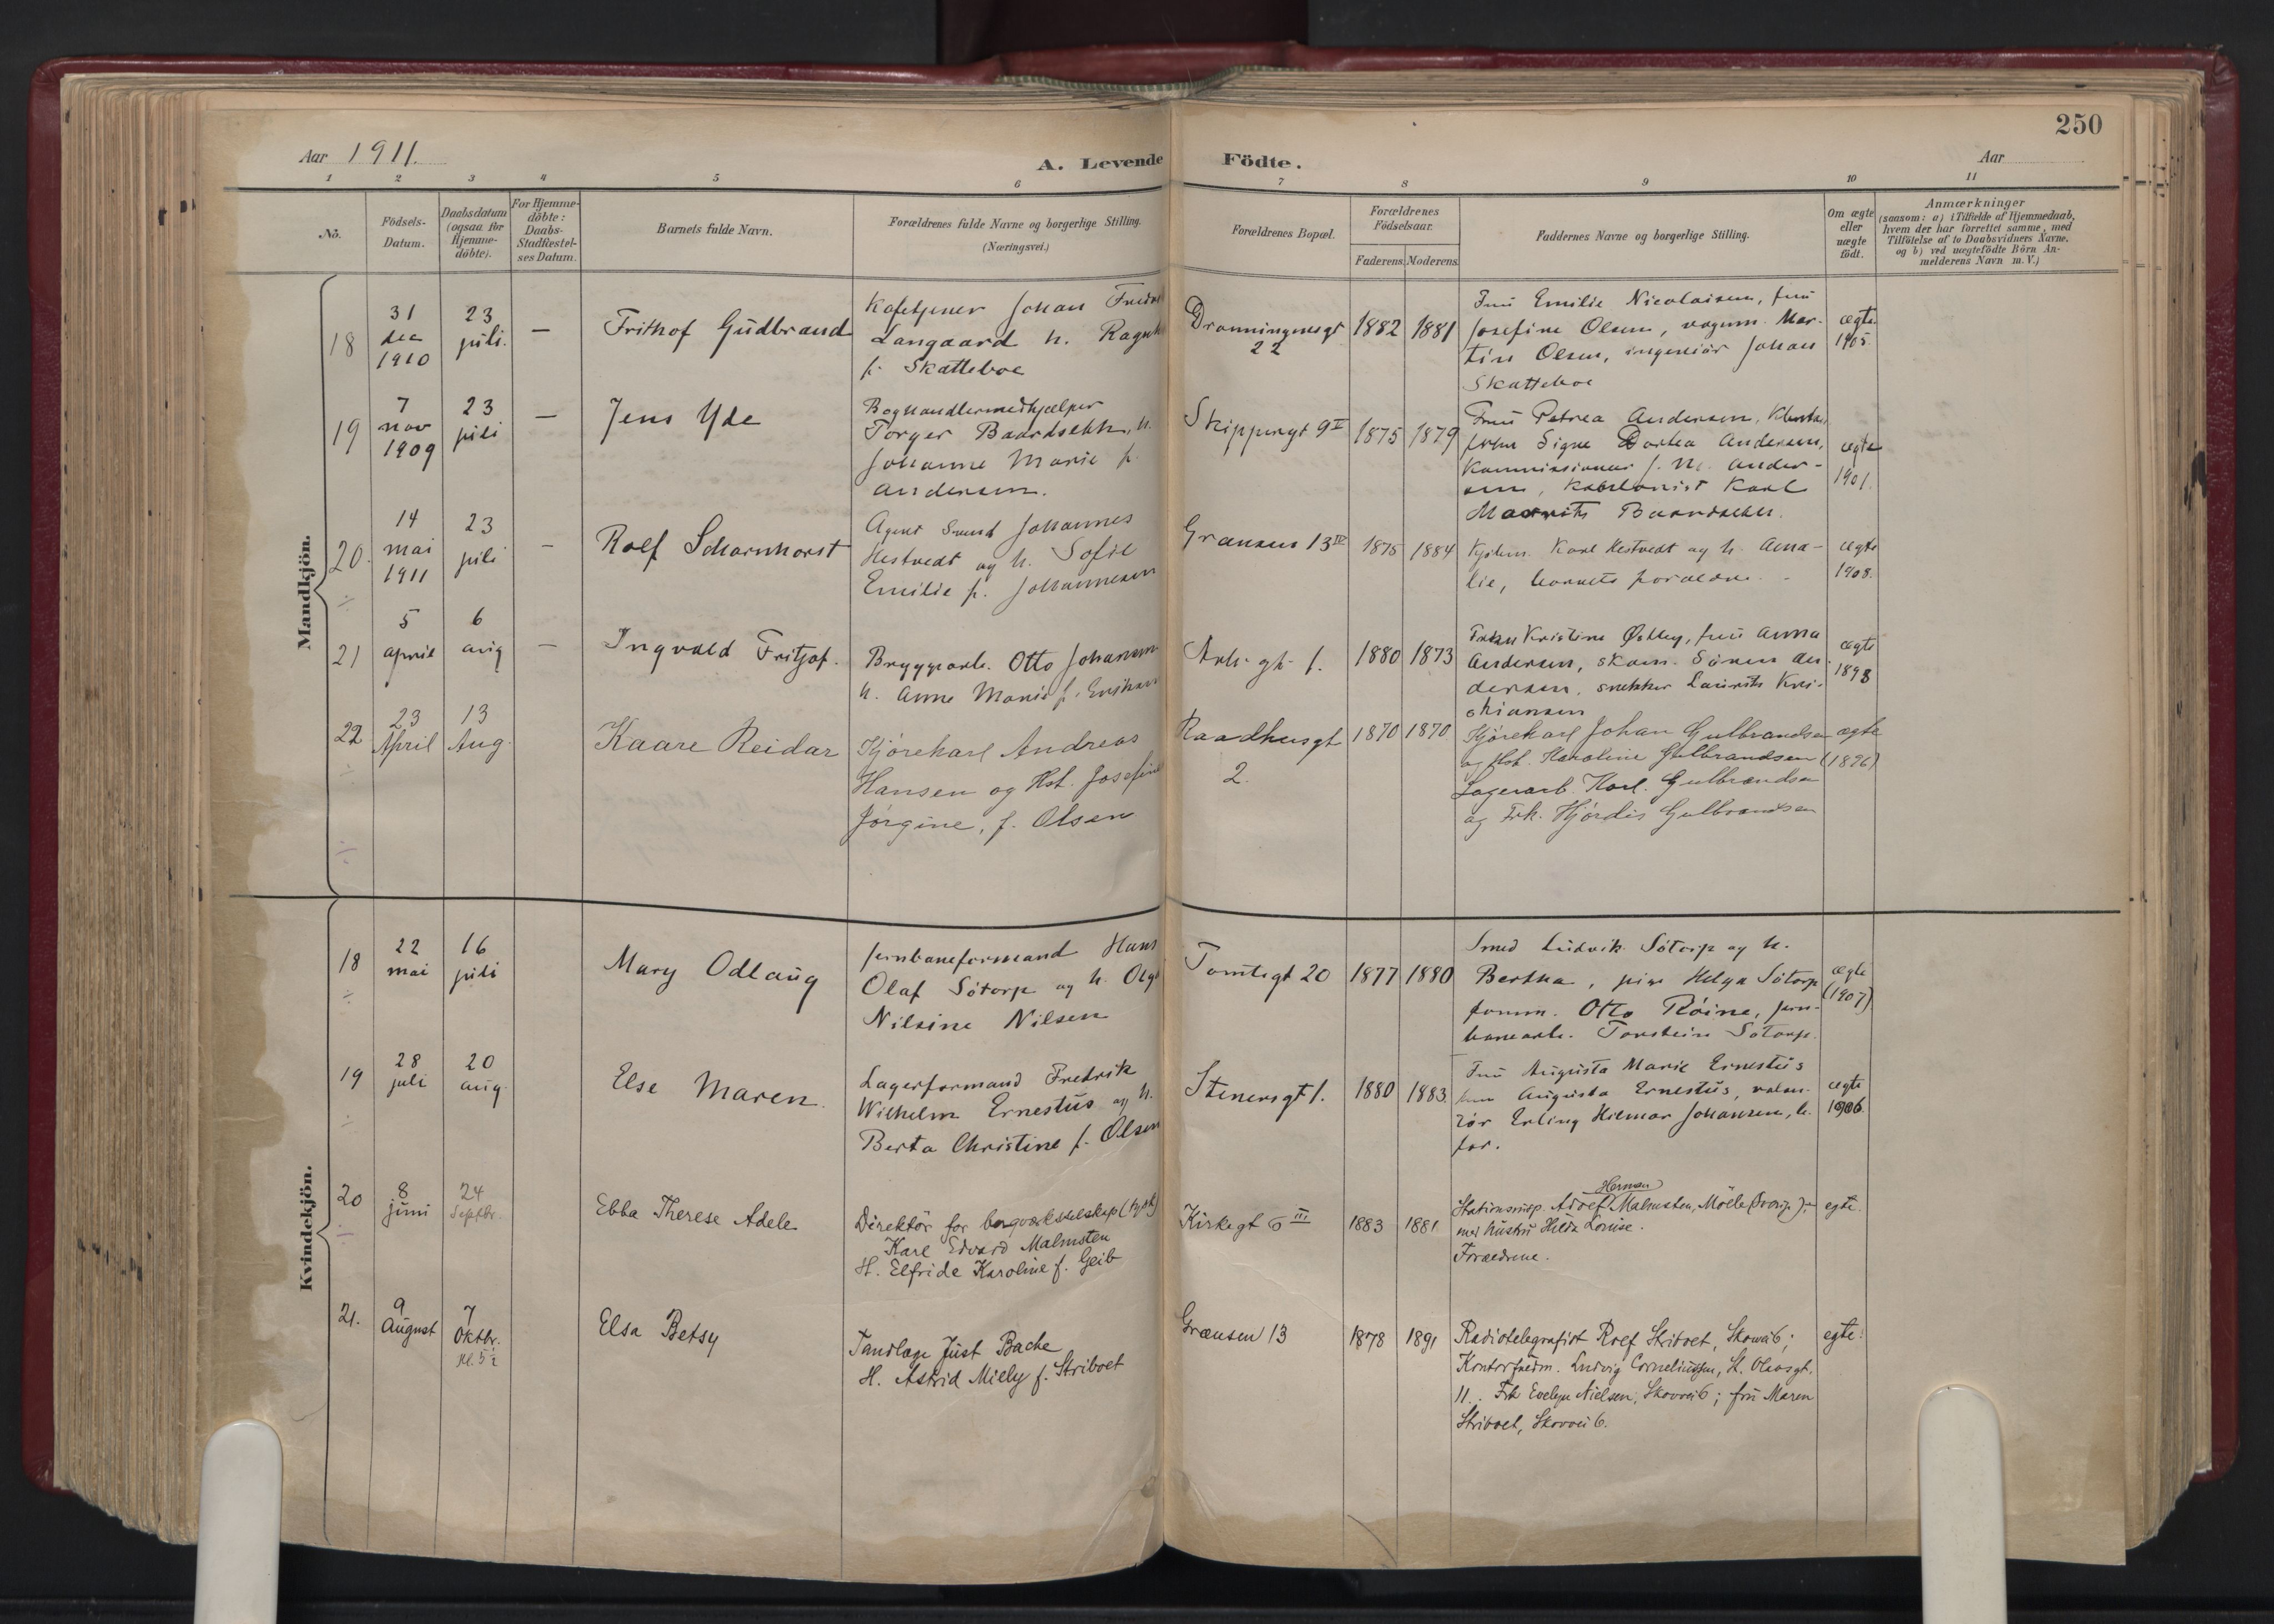 250
Aar 1911.
A. Levende Födte.
Aar
1 2 3 4 5 6 7 8 9 10 11
No.
Födsels-Datum.
Daabsdatum (ogsaa for Hjemme-döbte).
For Hjemme-döbte: Daabs-Stadfæstel-ses Datum.
Barnets fulde Navn.
Forældrenes fulde Navne og borgerlige Stilling.
(Næringsvei.)
Forældrenes Bopæl.
Forældrenes Födselsaar.
Faderens. Moderens.
Faddernes Navne og borgerlige Stilling.
Om ægte eller uægte födt.
Anmærkninger
(saasom: a) i Tilfælde af Hjemmedaab,
hvem der har forrettet samme, med
Tilföielse af to Daabsvidners Navne,
og b) ved uægtefödte Börn An-
melderens Navn m. V.)
Mandkjön.
18
31 dec 1910
23 juli.
—
Frithof Gudbrand
Kafetjener Johan
Langaard h. Ragnh
f. Skatteboe
Dronningensgt 22
1882 1881
Fru Emilie Nicolaisen, fru
Josefine Olsen, vognm. Mar-
tin Olsen, ingeniör Johan
Skatteboe
ægte 1905
19
7 nov 1909
23 juli
—
Jens Yde
Boghandlermedhjælper
Torger Baardsethh, h.
Johanne Marie f.
Andersen.
Skippergt 9 II
1875 1879
Fru Petrea Andersen,
frkn Signe Dortea Andersen,
Kommissionær J. M. Ander-
sen, Karl
Mauritz
ægte 1901.
20.
14 mai 1911
23 juli
—
Rolf Scharnhorst
Agent Svend Johannes
Hestvedt og h. Sofie
Emilie f. Johannesen
Grænsen 13 IV
1875 1884
Kjöbm. Karl Hestvedt og h. Ama-
lie, barnets forældre.
ægte 1908.
÷
21
5 april
6 aug
—
Ingvald Fritjof.
Bryggearb. Otto Johansen
h. Anne Marie f. Eriksen
Arb. gt. 1.
1880 1873
Frkn Kristine Østby, fru Anna
Andersen, skom. Sören An-
dersen, snekker Laurits Kri-
stiansen
ægte 1898
22
23 April
13 Aug.
Kaare Reidar
Kjørekarl Andreas
Hansen og Hst. Josefine
Jørgine, f. Olsen
Raadhusgt 2.
1870 1870
Kjørekarl Johan Gulbrandsen
og Hst. Karoline Gulbrandsen
Lagerarb. Karl. Gulbrandsen
og Frk. Hjørdis Gulbrandsen
ægte (1896)
÷
÷
Kvindekjön.
18
22 mai
16 juli
Mary Odlaug
Jernbaneformand Hans
Olaf Sötorp og h. Olga
Nilsine Nilsen
Tomtegt 20
1877 1880
Smed Ludvik Sötorp og h.
Bertha, pige Helga Sötorp
formm. Otto Röine, jern-
banearb. Torstein Sötorp.
ægte (1907)
÷
19
28 juli
20 aug.
Else Maren.
Lagerformand Fredrik
Wilhelm Ernestus og h.
Berta Christine f. Olsen
Stenersgt 1.
1880 1883.
Fru Augusta Marie Ernestus
Augusta Ernestus,
Erling Hilmar Johansen, b.
far.
ægte 1906.
÷
20
8 juni
24 Septbr.
Ebba Therese Adele
Direktör for bergværkselskap (tysk)
Karl Edvard Malmsten
H. Elfride Karoline f. Geib
Kirkegt 6 III
1883 1881
Herman
Stationsinsp. Adolf Malmsten, Mölle (Sverige)
med hustru Hilda Louise.
Forældrene.
egte.
÷
21.
9 August
7 Oktbr. Kl. 5½
Elsa Betsy
Tandlæge Just Bache
H. Astrid Mielly f. Striboet
Grænsen 13
1878 1891
Radiotelegrafist Rolf Striboet, Skovvei 6;
Kontorfuldm. Ludvig Corneliussen, St. Olavsgt.
11. Frk Evelyn Nielsen, Skovvei 6; fru Maren
Striboet, Skovvei 6.
egte.